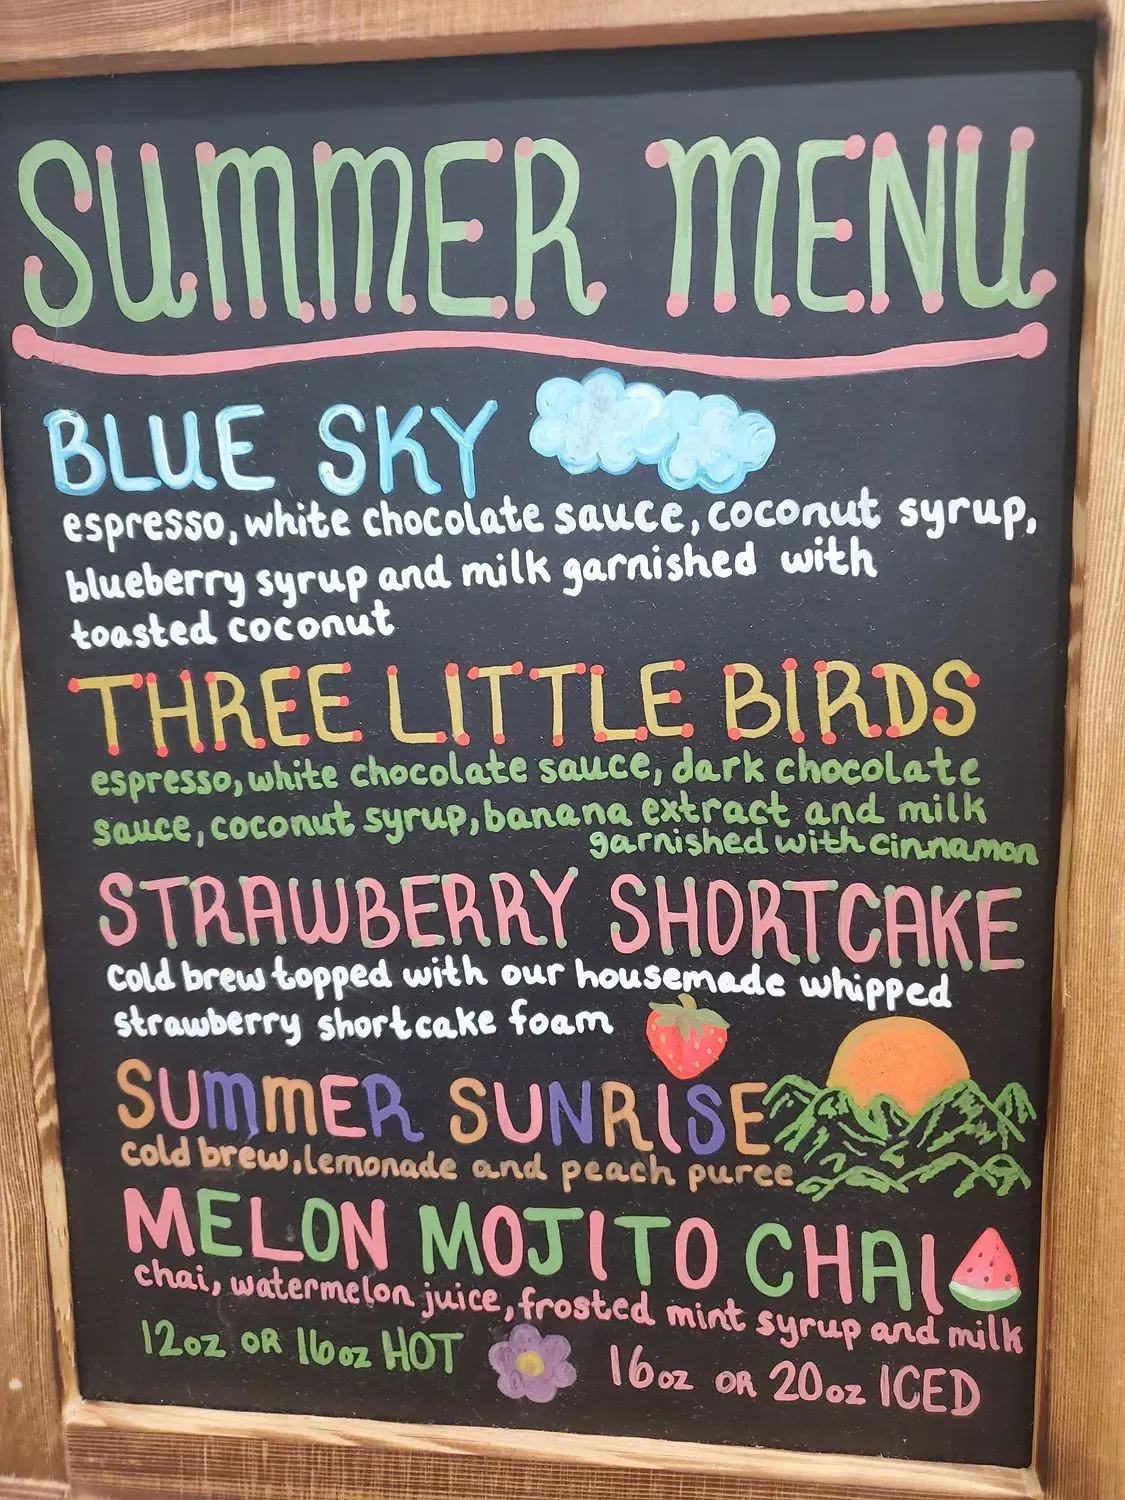 SUMMER MENU
BLUE SKY
espresso, white chocolate sauce, coconut syrup,
blueberry syrup and milk garnished with
toasted coconut
THREE LITTLE BIRDS
espresso, white chocolate sauce, dark chocolate
sauce, coconut syrup, banana extract and milk
garnished with cinnamon
STRAWBERRY SHORTCAKE
cold brew topped with our housemade whipped
strawberry shortcake foam
SUMMER SUNRISE
cold brew, lemonade and peach puree
MELON MOJITO CHAI
chai, watermelon juice, frosted mint syrup and milk
12oz OR 16oz HOT
16oz OR 20oz ICED